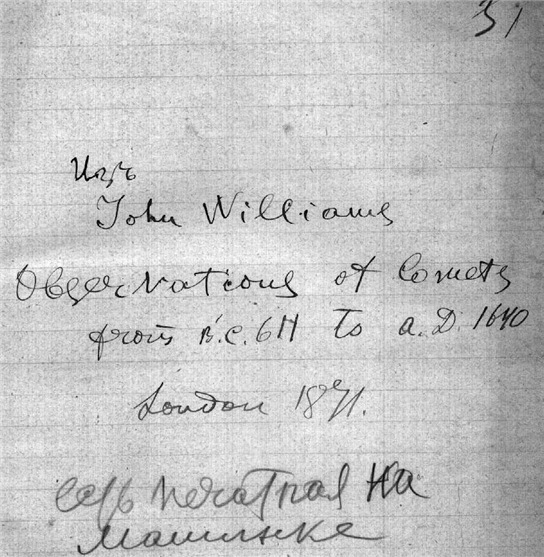 31
Изъ
John Williams
Observations of Comets
from B.C. 611 to A.D. 1640
London 1871.
есть печатная на
машинке